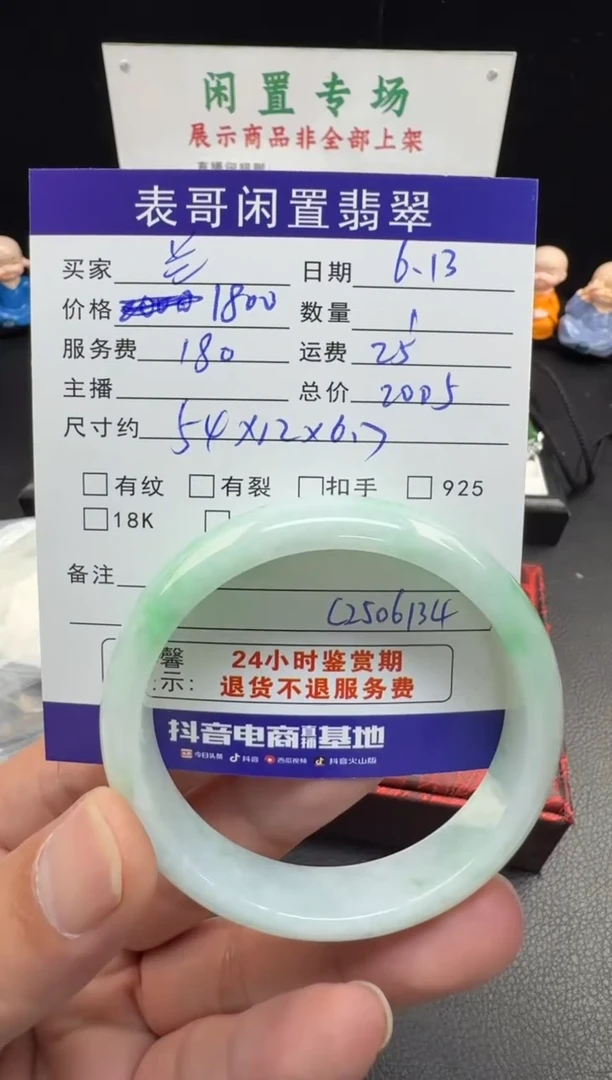 闲置专场
展示商品非全部上架
表哥闲置翡翠
买家 兰 日期 6.13
价格 1800 数量 1
服务费 180 运费 25
主播 总价 2005
尺寸约 54×12×6.7
□有纹 □有裂 □扣手 □925
□18K □
备注
C2506134
馨 24小时鉴赏期
示: 退货不退服务费
抖音电商直播基地
今日头条 抖音 西瓜视频 抖音火山版